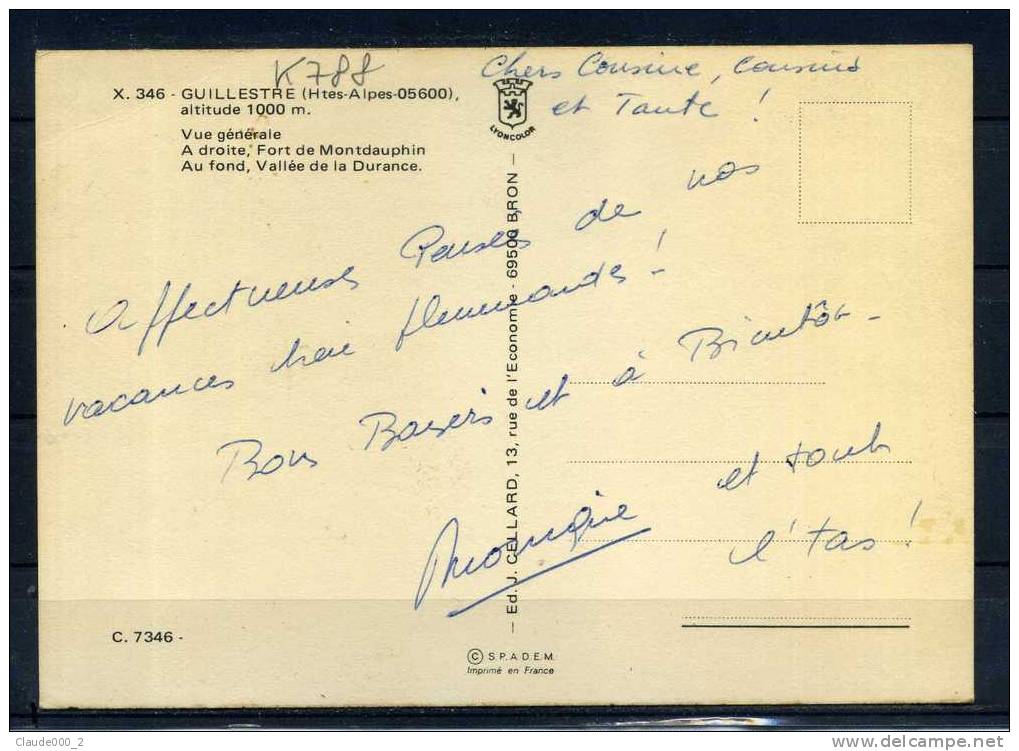 K788
X. 346 - GUILLESTRE (Htes-Alpes-05600),
altitude 1000 m.
Vue générale
A droite, Fort de Montdauphin
Au fond, Vallée de la Durance.
LYONCOLOR
Chers Cousine, cousins
et Tante !
Affectueuses Pensées de nos
vacances bien flemmardes !
Bons Baisers et à Bientôt -
Monique et tout
l'tas !
— Ed. J. CELLARD, 13, rue de l'Economie - 69500 BRON —
C. 7346 -
© S.P.A.D.E.M.
Imprimé en France
Claude000_2
www.delcampe.net